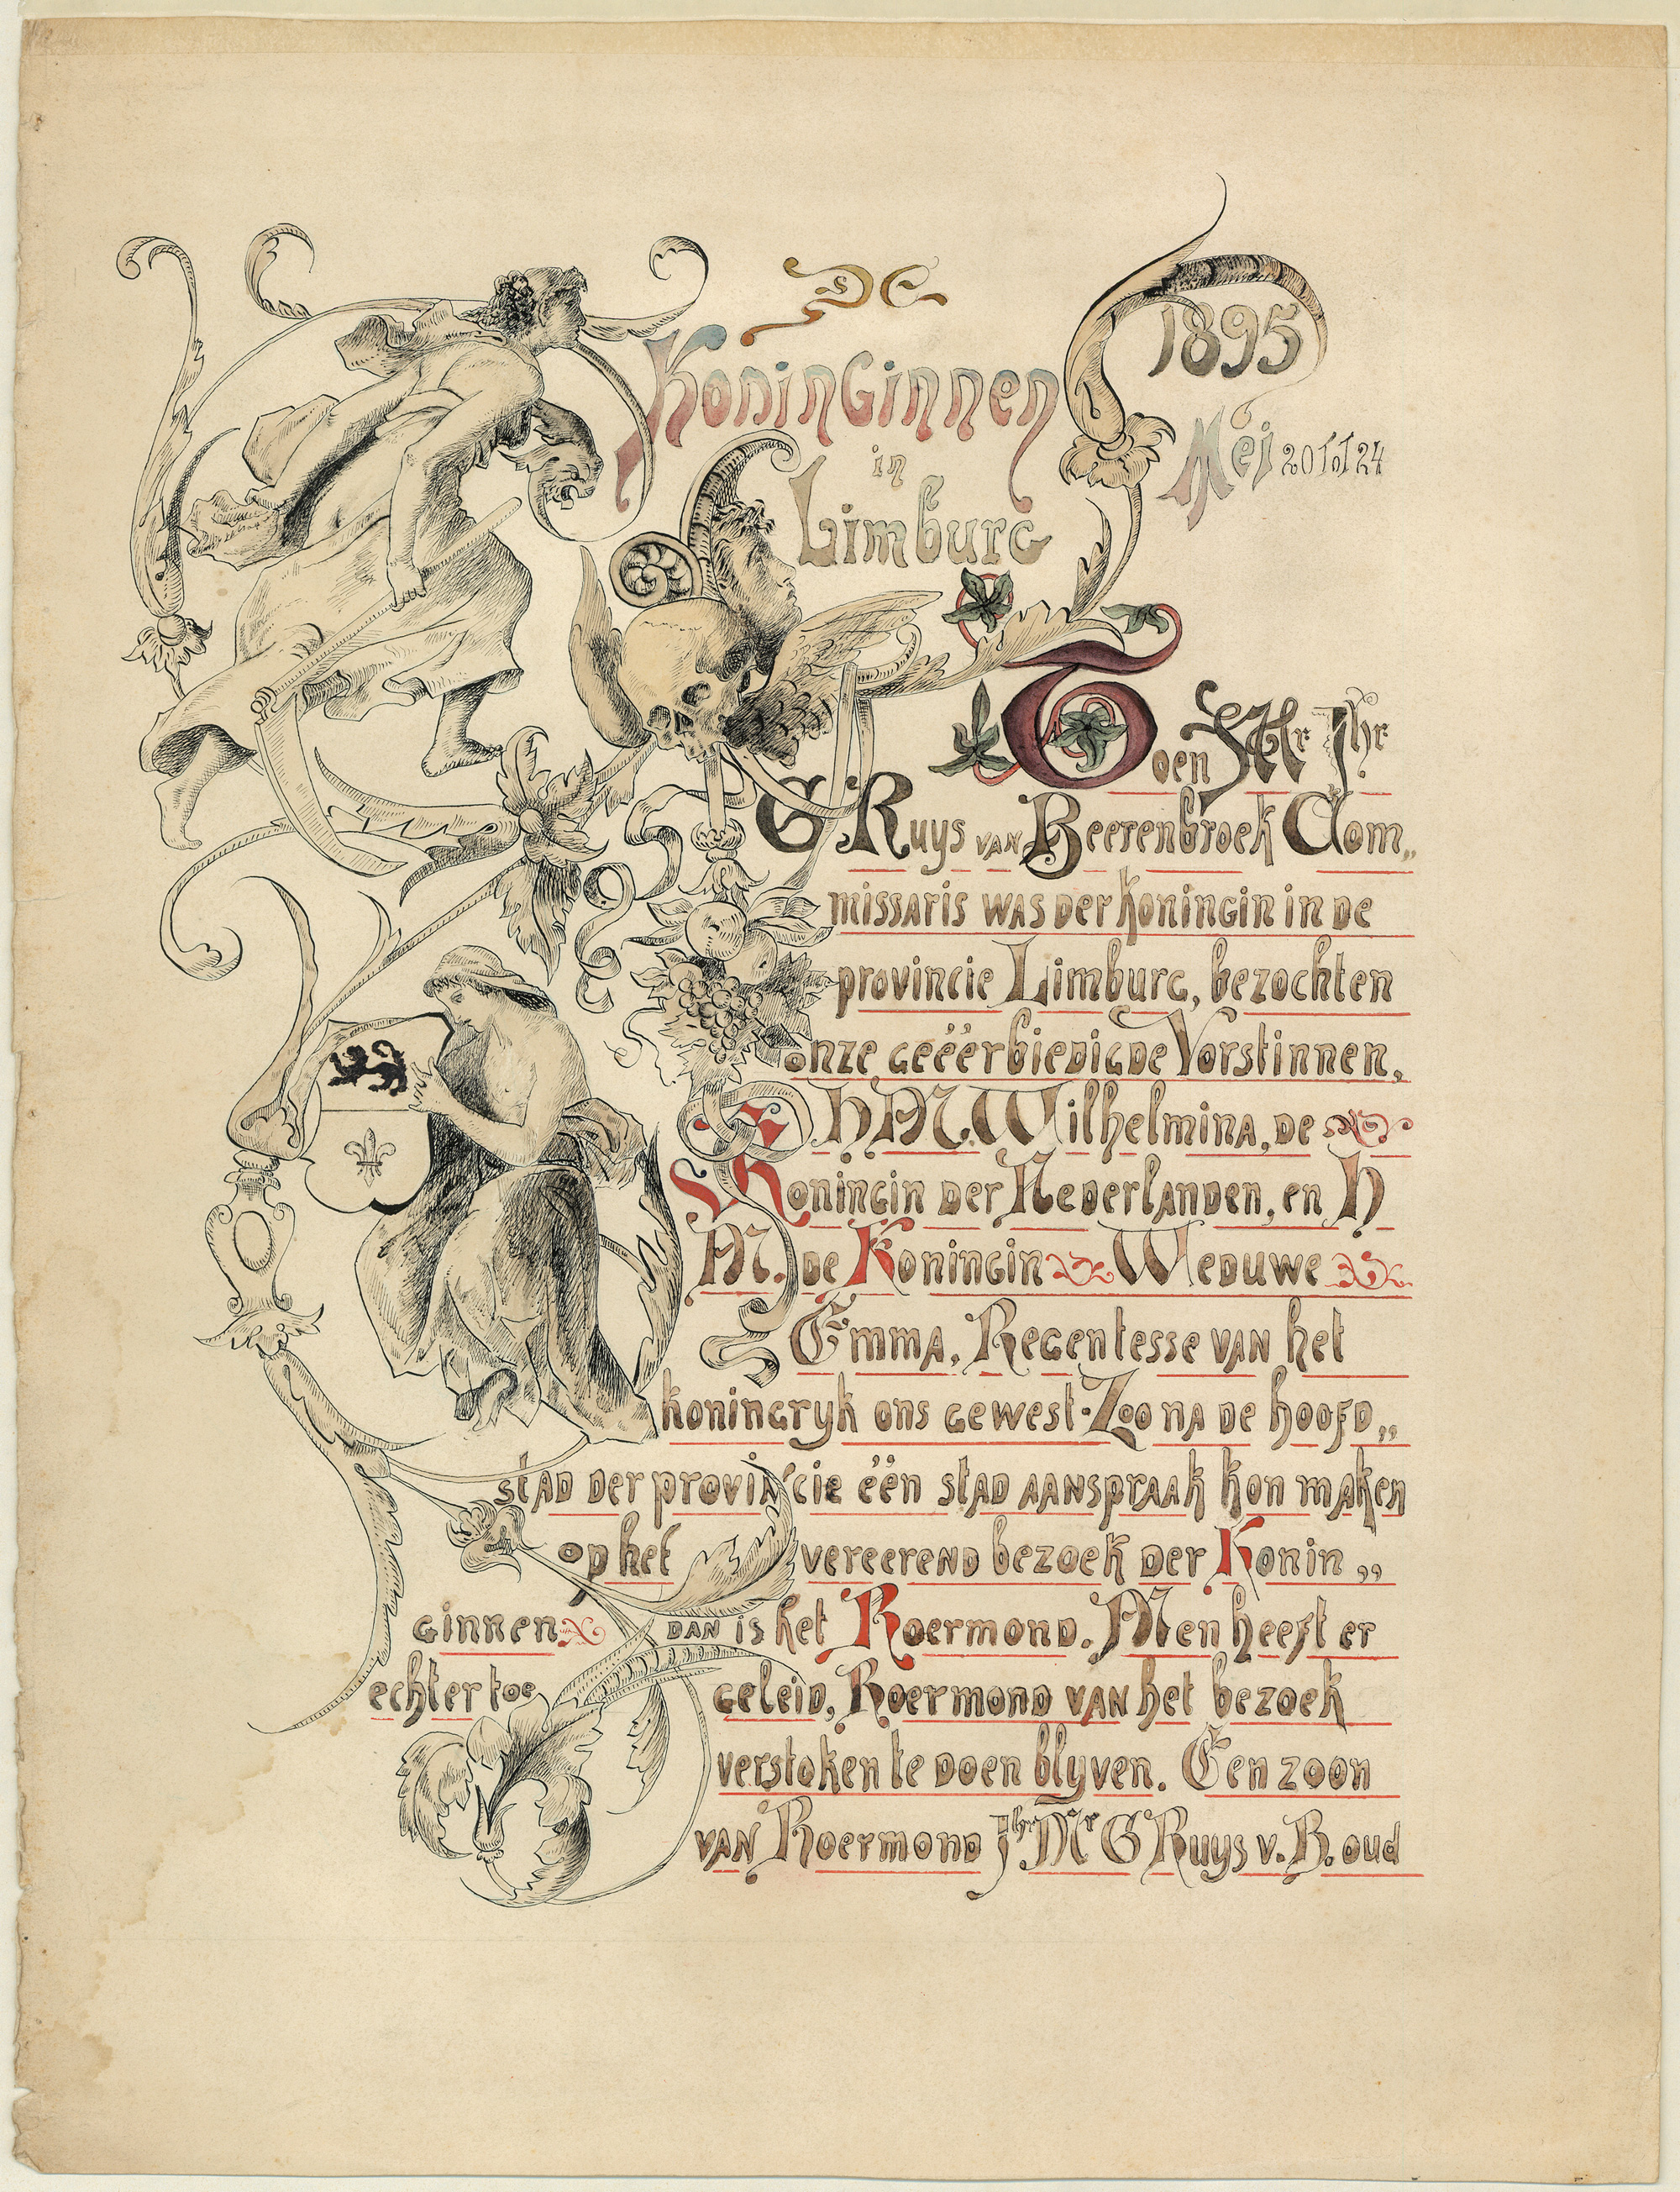 De
Koninginnen
in
Limburg
1895
Mei 20 tot 24
Toen Mr Jhr
G Ruys van Beerenbroek Com„
missaris was der koningin in de
provincie Limburg, bezochten
onze geëerbiedigde Vorstinnen,
H M. Wilhelmina, de
Koningin der Nederlanden, en H
M. de Koningin Weduwe
Emma, Regentesse van het
koningryk ons gewest. Zoo na de hoofd„
stad der provincie één stad aanspraak kon maken
op het vereerend bezoek der Konin„
ginnen dan is het Roermond. Men heeft er
echter toe geleid, Roermond van het bezoek
verstoken te doen blyven. Een zoon
van Roermond Jhr Mr G Ruys v. B. oud